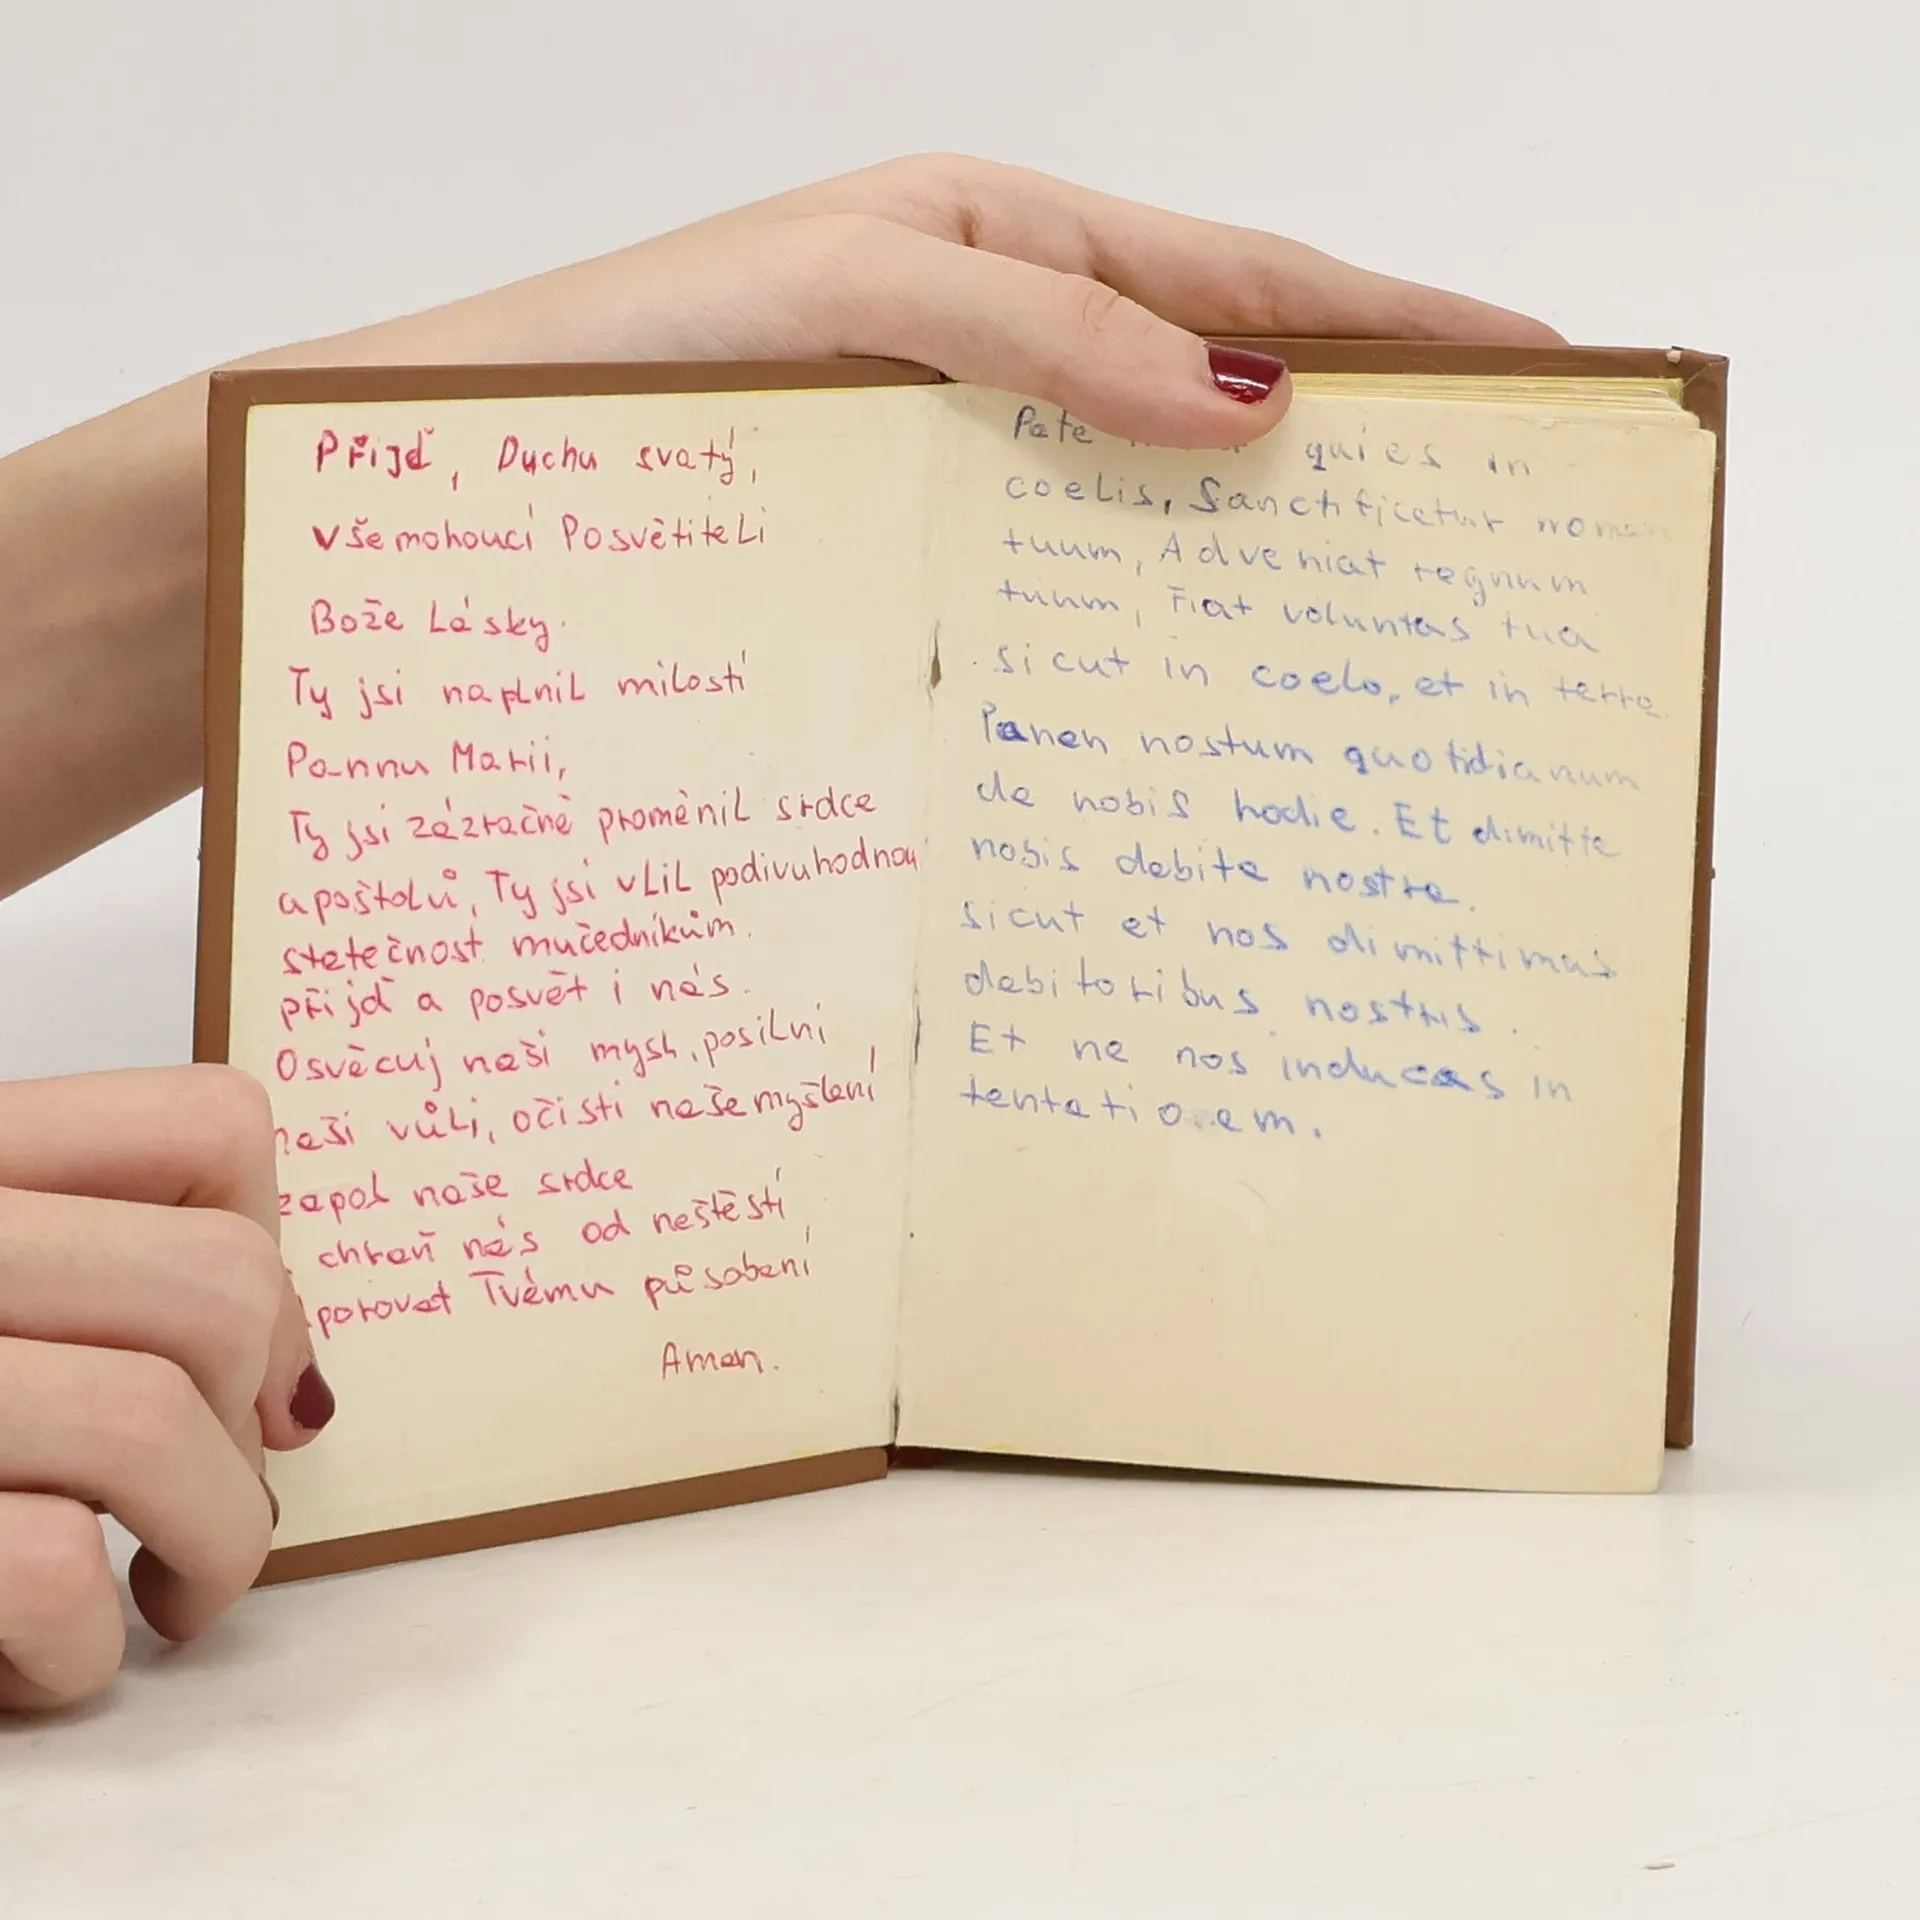 Přijď, Duchu svatý,
všemohoucí Posvětiteli
Bože Lásky.
Ty jsi naplnil milostí
Pannu Marii,
Ty jsi zázračně proměnil srdce
apoštolů, Ty jsi vlil podivuhodnou
statečnost mučedníkům.
přijď a posvět i nás.
Osvěcuj naši mysl, posilni
naši vůli, očisti naše myšlení,
zapal naše srdce
chraň nás od neštěstí,
porovat Tvému působení
Amen.
Pate qui es in
coelis, Sanctificetur nomen
tuum, Adveniat regnum
tuum, Fiat voluntas tua
sicut in coelo, et in terra.
Panen nostum quotidianum
da nobis hodie. Et dimitte
nobis debita nostra.
sicut et nos dimittimus
debitoribus nostris.
Et ne nos inducas in